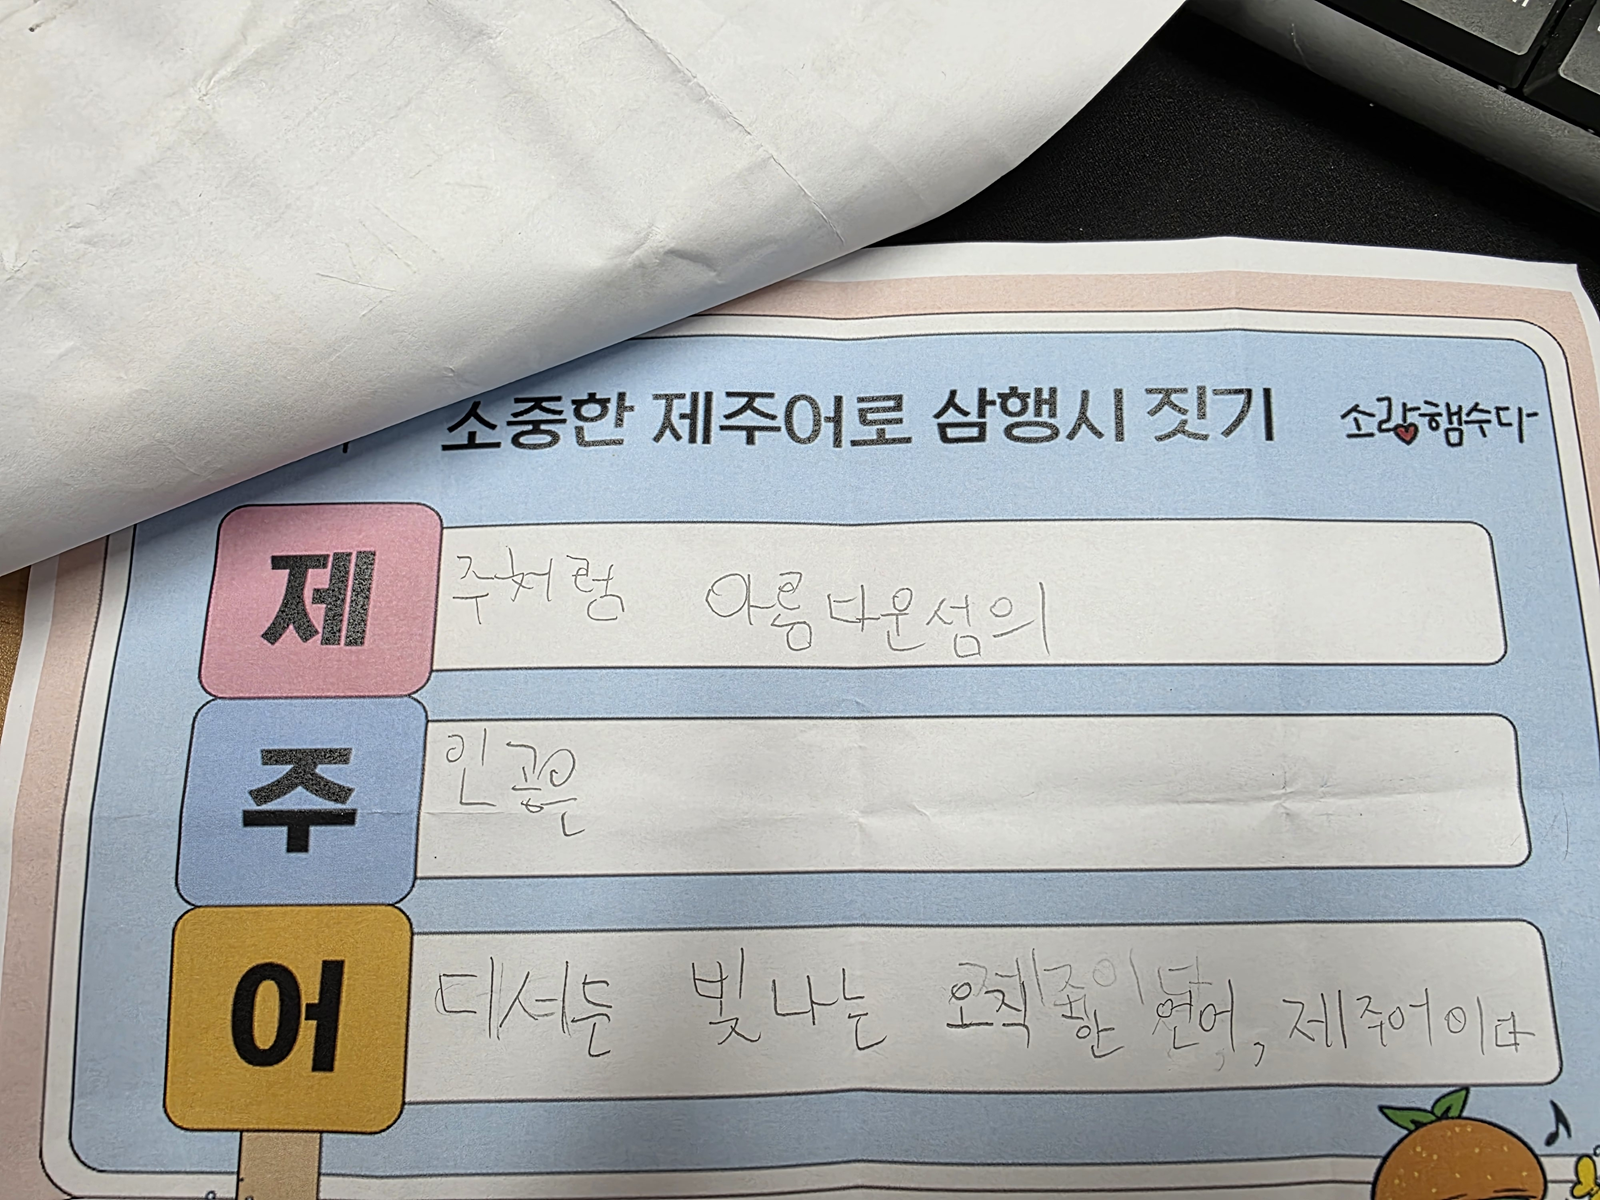 소중한 제주어로 삼행시 짓기 소랑햄수다
제 주처럼 아름다운섬의
주 인공은
어 디셔든 빛나는 오직 한 언어, 제주어이다